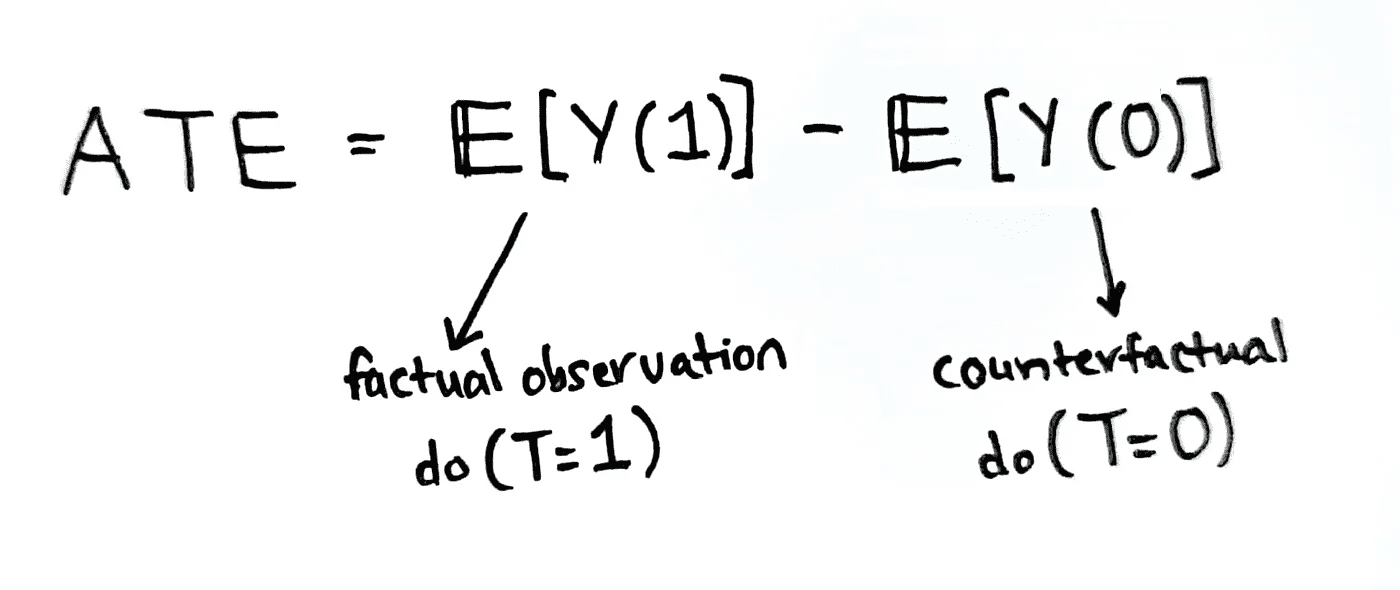 ATE = 𝔼[Y(1)] - 𝔼[Y(0)]
factual observation counterfactual
do(T=1) do(T=0)